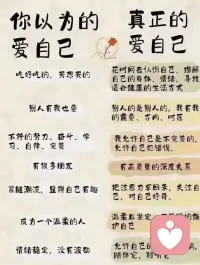 你以为的
爱自己
真正的
爱自己
吃好吃的，买想买的
花时间去认识自己，理解
自己的身体、情绪，寻找
适合健康的生活方式
别人有我也要
别人的是别人的，我有我
的需要、方向、时区
不停的努力、奋斗、学
习、自律、完美
我允许自己是不完美的，
允许自己犯错误、
有很多朋友
有高质量的深度关系
紧随潮流，显得自己有趣
把注意力拿回来，关注自
己，对自己好奇。
成为一个温柔的人
温柔且坚定
护自己
情绪稳定，没有波动
允许自己的